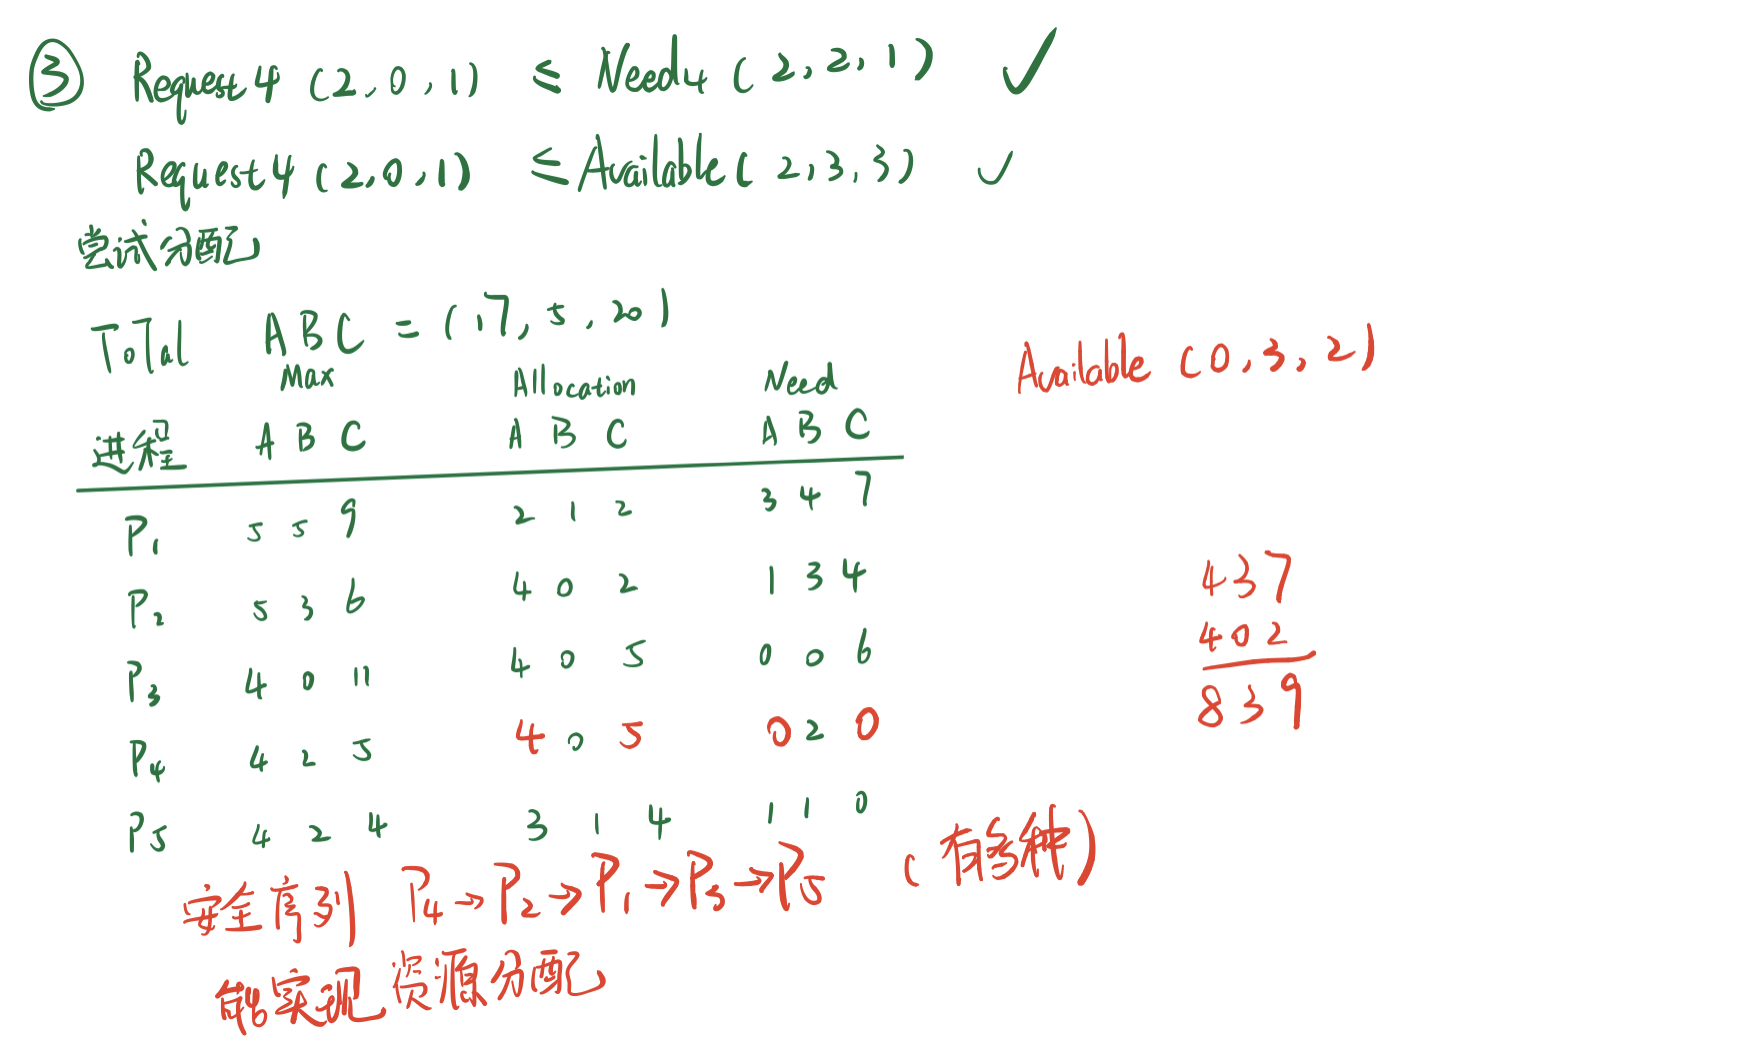 ③ Request4 (2,0,1) ≤ Need4 (2,2,1) ✓
Request4 (2,0,1) ≤ Available (2,3,3) ✓
尝试分配
ToTal A B C = (17,5,20)
Available (0,3,2)
Max Allocation Need
进程 A B C A B C A B C
P1 5 5 9 2 1 2 3 4 7
P2 5 3 6 4 0 2 1 3 4
P3 4 0 11 4 0 5 0 0 6
P4 4 2 5 4 0 5 0 2 0
P5 4 2 4 3 1 4 1 1 0
437
402
839
安全序列 P4→P2→P1→P3→P5 (有多种)
能实现资源分配